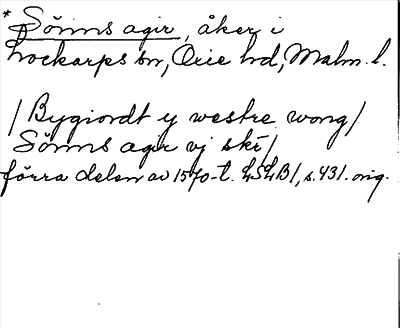 * Sönns agir, åker i
Lockarps sn, Oxie hd, Malm. l.
/ Bygiordt y westre wong /
Sönns agr vj ski /
förra delen av 1570-t. LSLB1, s. 431. orig.